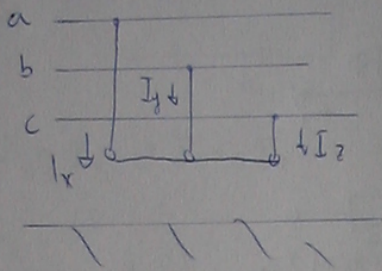 a
b
I_y
c
I_x
I_z